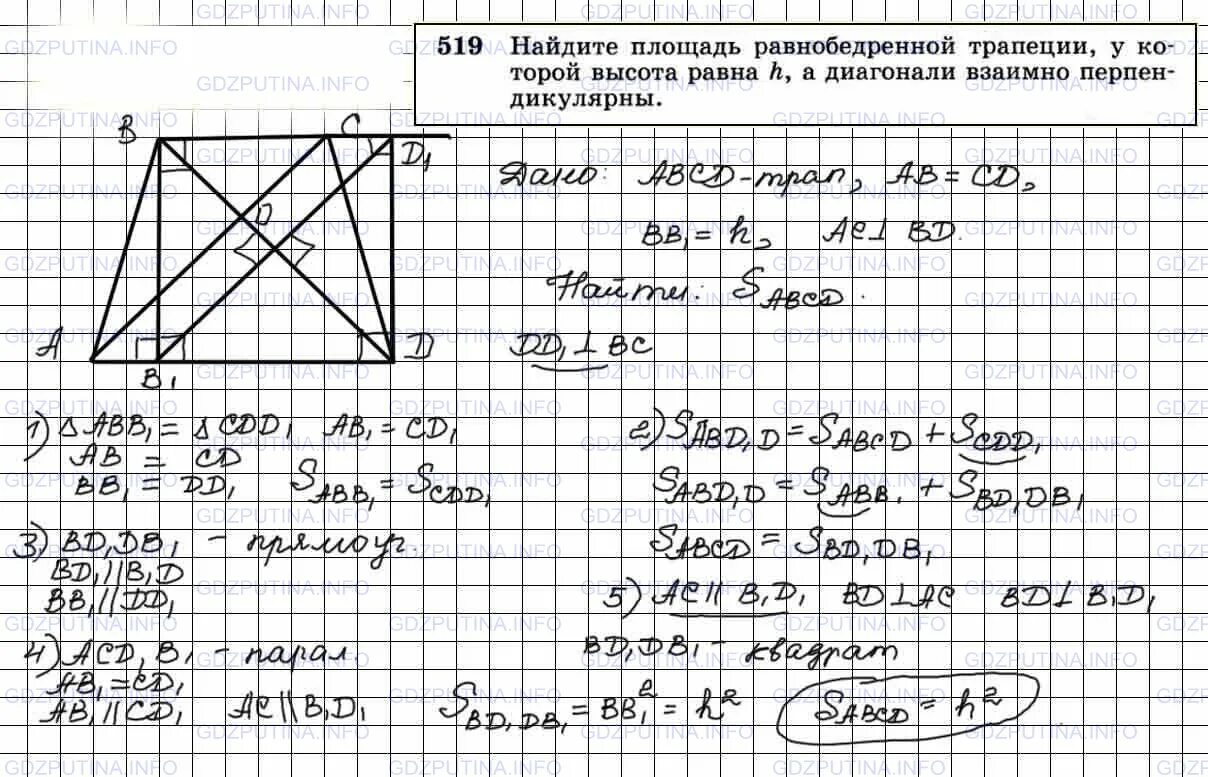 519 Найдите площадь равнобедренной трапеции, у ко-
торой высота равна h, а диагонали взаимно перпен-
дикулярны.
B C D₁
O
A B₁ D
Дано: ABCD-трап, AB = CD,
BB₁ = h, AC⊥ BD.
Найти: S_ABCD.
DD₁ ⊥ BC
1) △ ABB₁ = △ CDD₁ AB₁ = CD₁
AB = CD
BB₁ = DD₁ S_ABB₁ = S_CDD₁
2) S_ABD₁D = S_ABCD + S_CDD₁
S_ABD₁D = S_ABB₁ + S_BD₁DB₁
S_ABCD = S_BD₁DB₁
3) BD₁DB₁ - прямоуг.
BD₁ || B₁D
BB₁ || DD₁
4) ACD₁B₁ - парал.
AB₁ = CD₁
AB₁ || CD₁ AC || B₁D₁
5) AC || B₁D₁ BD ⊥ AC BD ⊥ B₁D₁
BD₁DB₁ - квадрат
S_BD₁DB₁ = BB₁² = h² S_ABCD = h²
GDZPUTINA.INFO